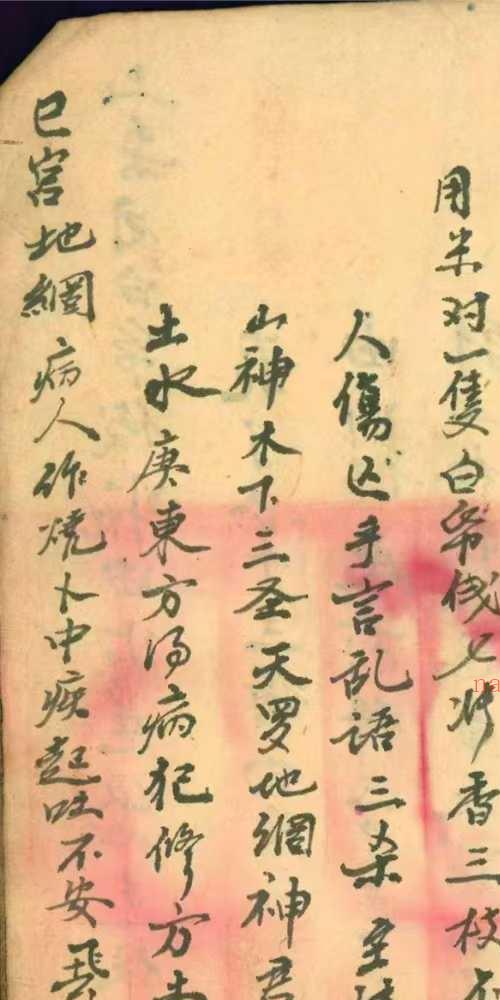 用米对一隻白帋伐七 香三枝
人傷亡乎言乱語三杀主
山神木下三圣天罗地網神君
土水庚東方得病犯修方土
巳宮地網病人作燒卜中痰起吐不安